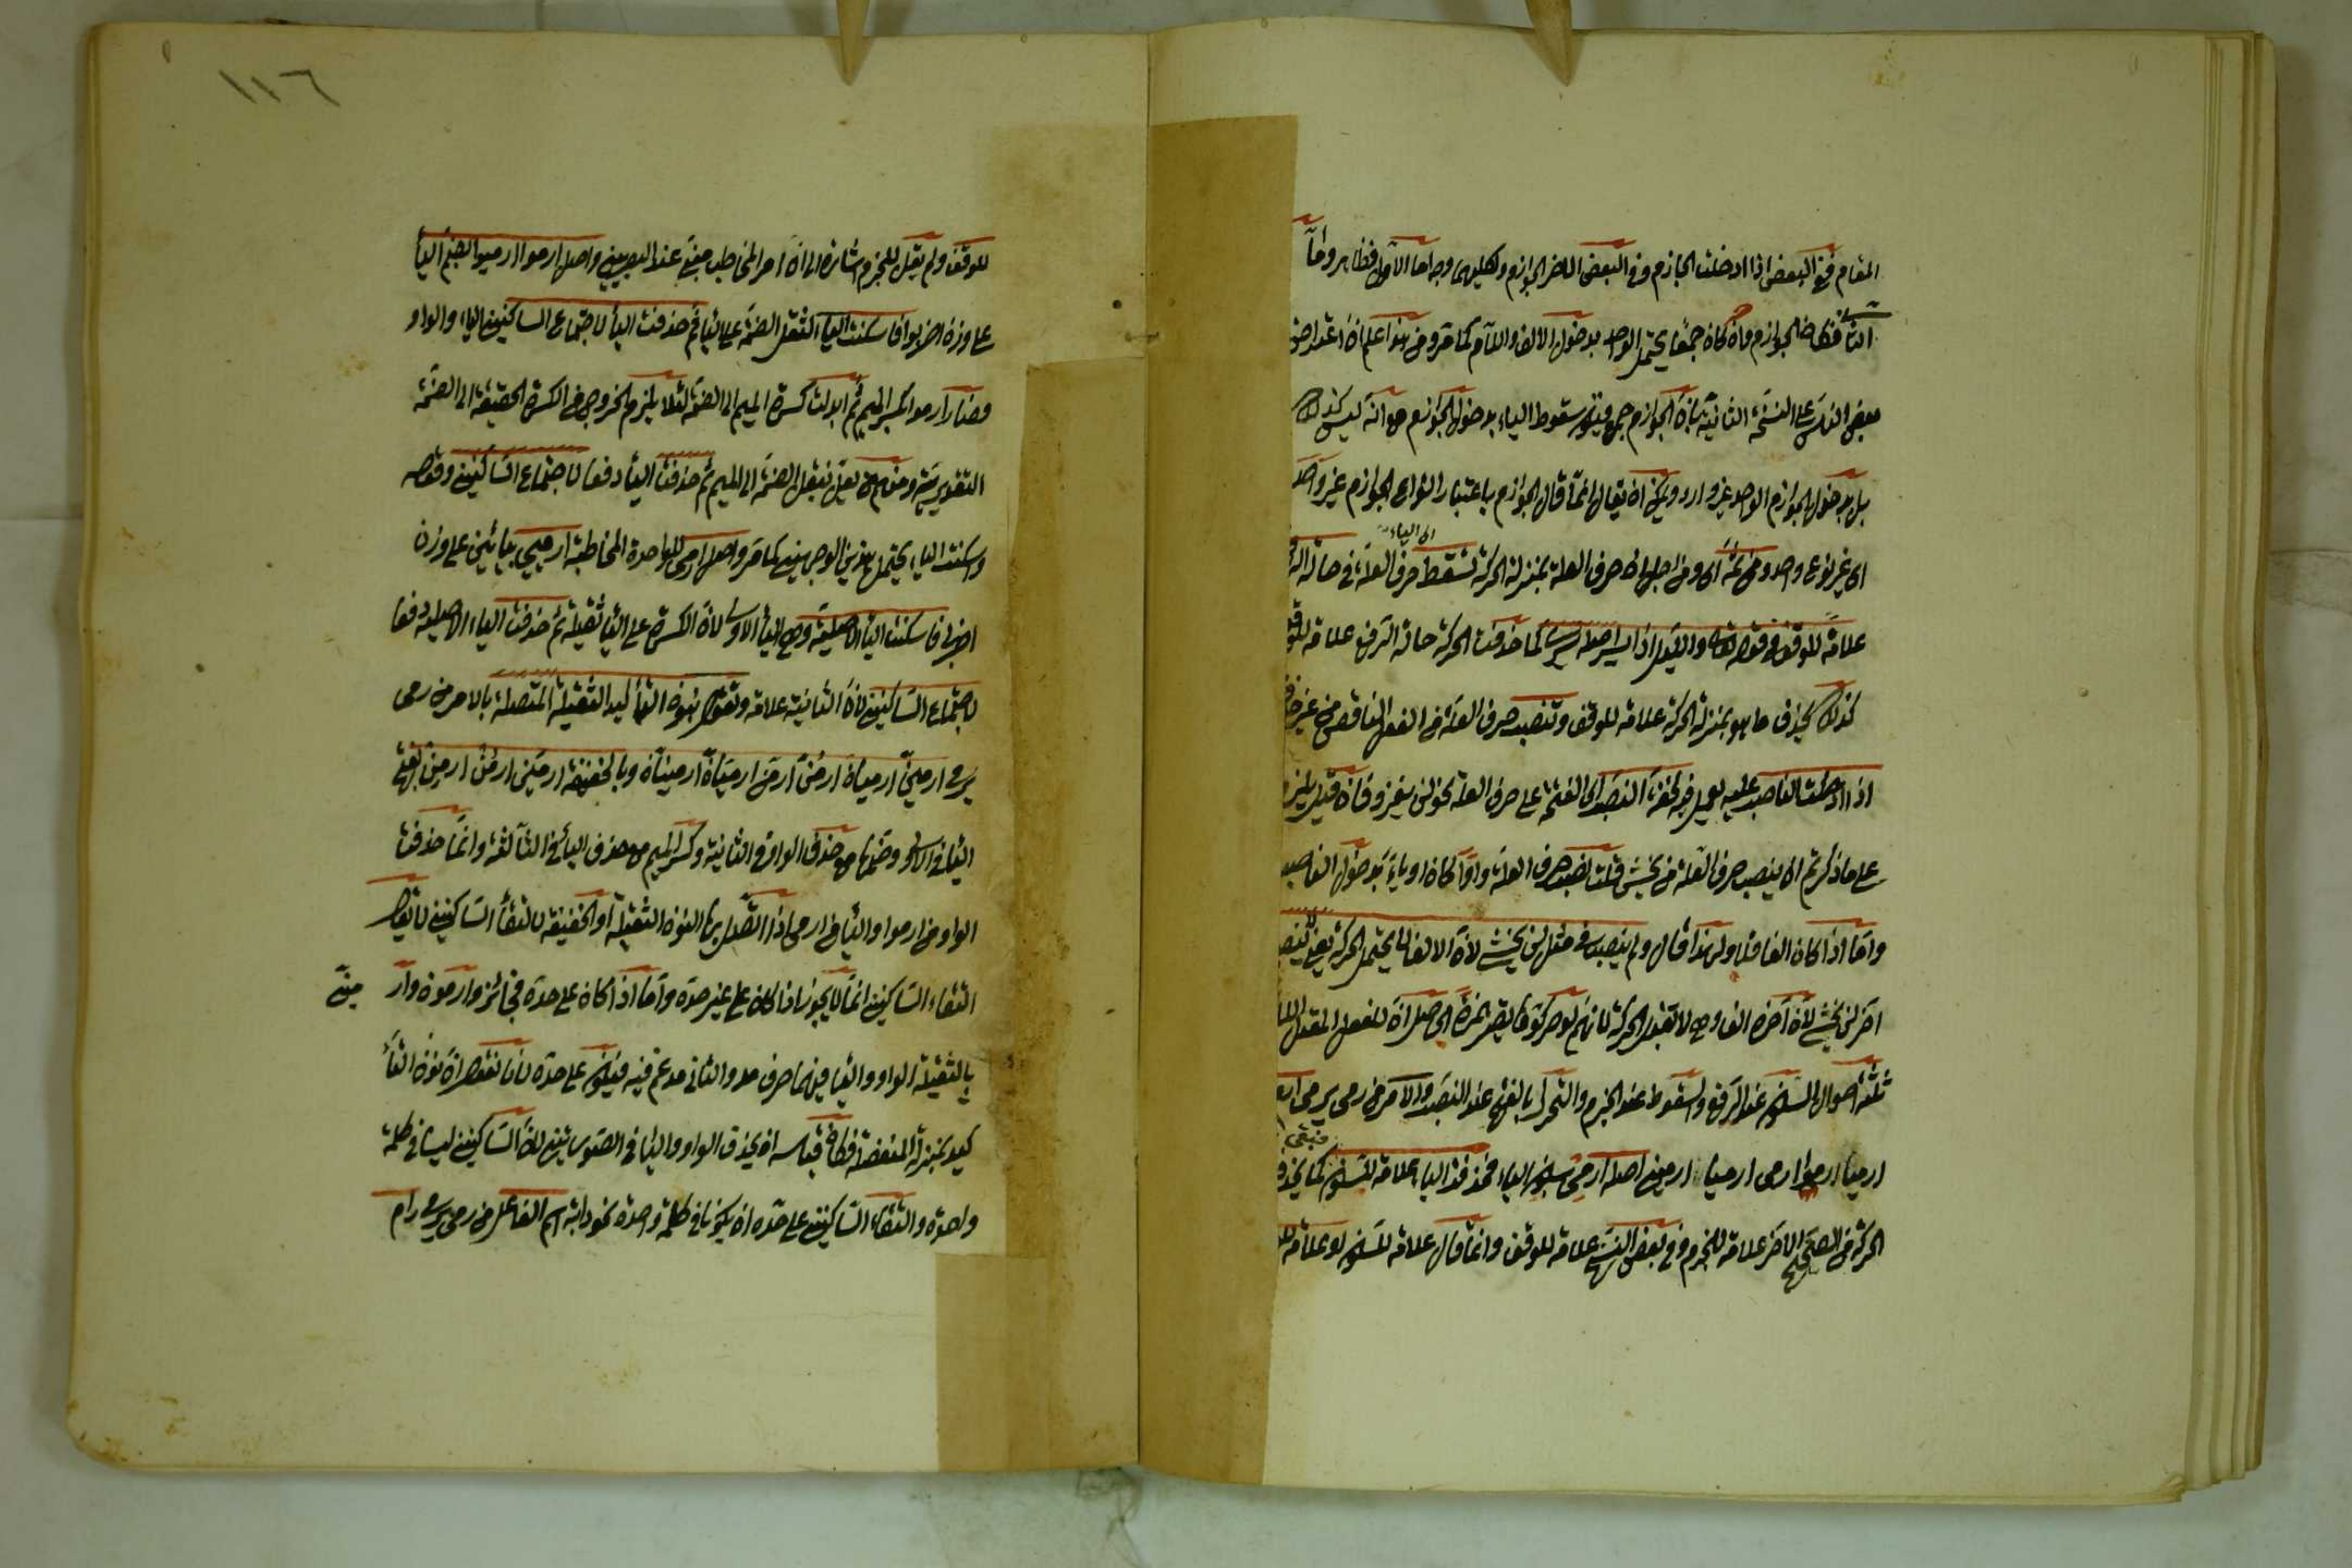 المقام ففى البعض اذا ادخلت الجازم وفى البعض الاخر الجوازم ولكليهما وجه اما الاول فظاهر واما
الثانى فكان الجوازم وان كان جمعا يحتمل الواحد بدخول الالف واللام كما مر ومن هذا علم ان اعتراض
بعض الناس على النسخة الثانية بان الجوازم جمع سقوط الياء بدخول الجوازم مع انه ليس كذلك
بل بدخول الجوازم الواحد غير وارد ويمكن ان يقال انما قال الجوازم باعتبار انواع الجوازم غير واحد
اى الياء
اى غير نوع واحد ومن ثمة اى ومن اجل ان حرف العلة بمنزلة الحركة تسقط حرف العلة فى حالة
علامة للوقف فى قوله تعالى والليل اذا يسر اصله يسرى كما حذفت الحركة حالة الرفع علامة للوقف
كذلك يحذف ما هو بمنزلة الحركة علامة للوقف وتنصب حرف العلة فى الفعل الناقص من غير
اذا ادخلت الناصب عليه لخفة النصب اى الفتحة على حرف العلة نحو لن يغزو فان قيل يلزم
على ما ذكرتم ان ينصب حرف العلة فى يخشى قلت نصب حرف العلة واوا كان او ياء بدخول الناصب
واما اذا كان الفا فلا ولهذا قال ولم ينصب فى مثل لن يخشى لان الالف لا يحتمل الحركة يعنى لم ينصب
اخر لن يخشى لان اخره الف وهى لا تقبل الحركة لانهم لو حركوها يصير همزة الحاصل ان للفعل المعتل اللام
ثلثة احوال السكون عند الرفع والسقوط عند الجزم والتحرك بالفتح عند النصب والامر من رمى يرمى ارم
فبقى
ارميا ارموا ارمى ارميا ارمين اصله ارمى بسكون الياء فحذفت الياء علامة للسكون كما يحذف
الحركة فى الصحيح الاخر علامة للجزم وفى بعض النسخ علامة للوقف وانما قال علامة للسكون او علامة
١١٦
للوقف ولم يقل للجزم اشارة الى ان امر المخاطب مبنى عند البصريين واصل ارموا ارميوا بضم الياء
على وزن اضربوا فاسكنت الياء لثقل الضمة على الياء ثم حذفت الياء لاجتماع الساكنين الياء والواو
فصار ارموا بكسر الميم ثم ابدلت كسرة الميم الى الضمة لئلا يلزم الخروج من الكسرة الحقيقة الى الضمة
التقديرية ومنهم من يقول بنقل الضمة الى الميم ثم حذفت الياء دفعا لاجتماع الساكنين وقوله
واسكنت الياء يحتمل هذين الوجهين كما مر واصل ارمى للواحدة المخاطبة ارميى بيائين على وزن
اضربى فاسكنت الياء الاصلية وهى الياء الاولى لان الكسرة على الياء ثقيلة ثم حذفت الياء الاصلية دفعا
لاجتماع الساكنين لان الثانية علامة وتقول بنون التأكيد الثقيلة المتصلة بالامر من رمى
يرمى ارمين ارميان ارمن ارمن ارميان ارمينان وبالخفيفة ارمين ارمن ارمن بفتح
الياء فى الاولى وضمها مع حذف الواو فى الثانية وكسر الميم مع حذف الياء فى الثالثة وانما حذفت
الواو من ارموا والياء من ارمى اذا اتصل بها النون الثقيلة او الخفيفة لالتقاء الساكنين لا يقال
التقاء الساكنين انما لا يجوز اذا كان على غير حده واما اذا كان على حده فجائز وارمون وار
مين
بالثقيلة الواو والياء فيهما حرف مد والثانى مدغم فيه فيكون على حده لانا نقول ان نون التأ
كيد بمنزلة المنفصلة فكان قياسه ان يحذف الواو والياء فى الصورتين لان الساكنين ليسا فى كلمة
واحدة والتقاء الساكنين على حده ان يكونا فى كلمة واحدة نحو دابة اسم الفاعل من رمى يرمى رام